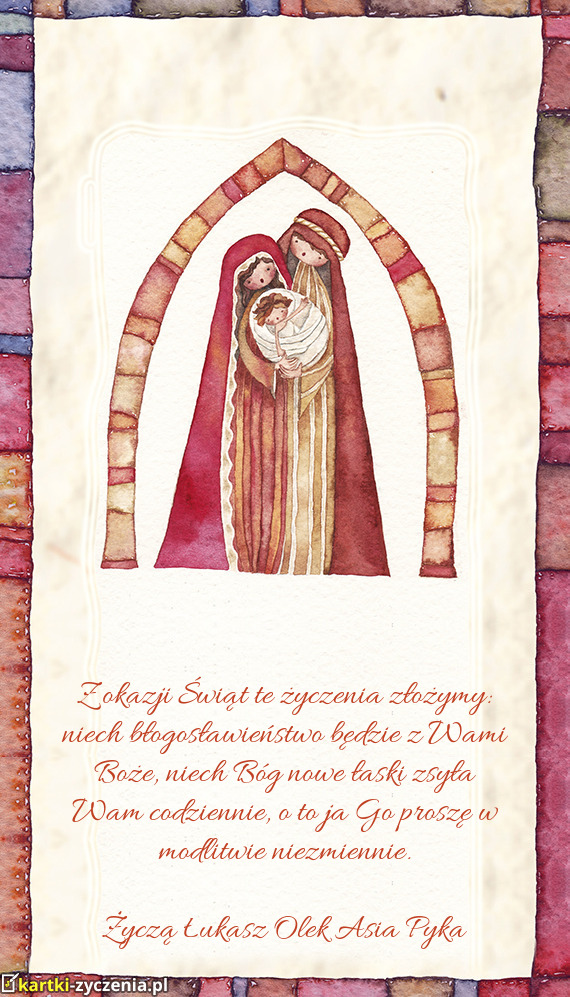 Z okazji Świąt te życzenia złożymy:
niech błogosławieństwo będzie z Wami
Boże, niech Bóg nowe łaski zsyła
Wam codziennie, o to ja Go proszę w
modlitwie niezmiennie.
Życzą Łukasz Olek Asia Pyka
kartki-zyczenia.pl